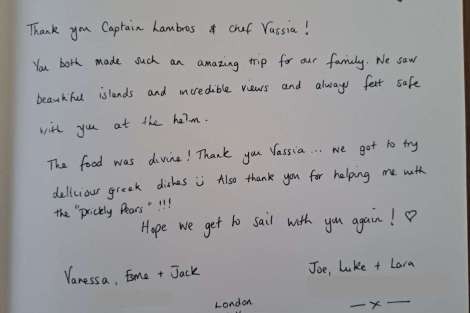 Thank you Captain Lambros & chef Vassia !
You both made such an amazing trip for our family. We saw
beautiful islands and incredible views and always felt safe
with you at the helm.
The food was divine! Thank you Vassia ... we got to try
delicious greek dishes ü Also thank you for helping me with
the "prickly Pears" !!!
Hope we get to sail with you again ! ♡
Vanessa, Esme + Jack
Joe, Luke + Lara
London
—x—